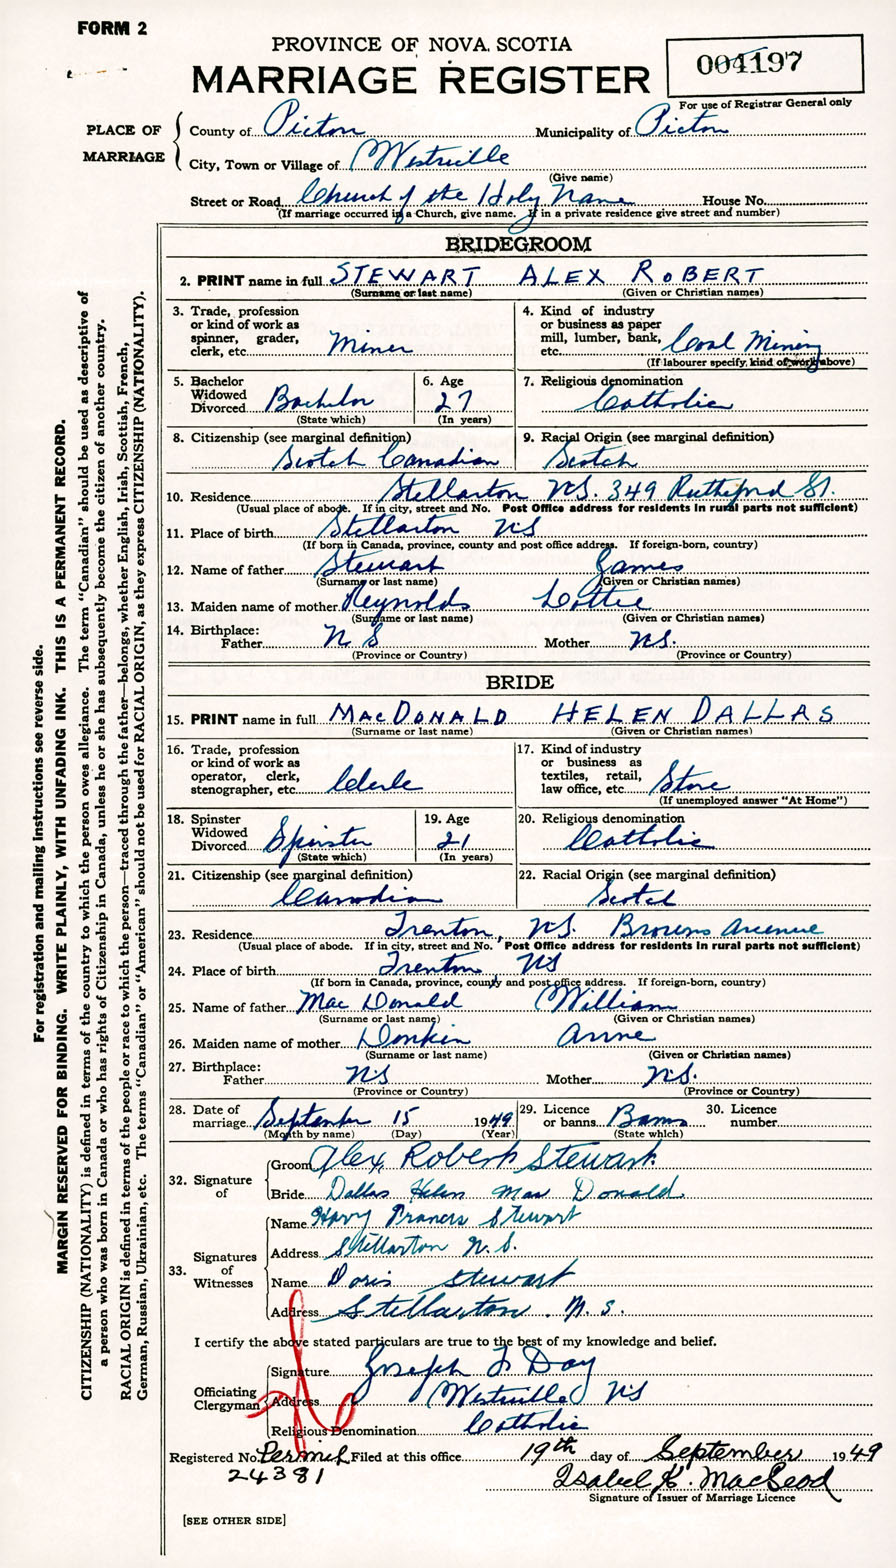 FORM 2
PROVINCE OF NOVA SCOTIA
MARRIAGE REGISTER
004197
For use of Registrar General only
PLACE OF MARRIAGE
County of Picton Municipality of Picton
City, Town or Village of Westville
(Give name)
Street or Road Church of the Holy Name House No.
(If marriage occurred in a Church, give name. If in a private residence give street and number)
BRIDEGROOM
2. PRINT name in full STEWART ALEX ROBERT
(Surname or last name) (Given or Christian names)
3. Trade, profession or kind of work as spinner, grader, clerk, etc. Miner
4. Kind of industry or business as paper mill, lumber, bank, etc. Coal Mining
(If labourer specify, kind of work above)
5. Bachelor Widowed Divorced Bachelor
(State which)
6. Age 27
(In years)
7. Religious denomination Catholic
8. Citizenship (see marginal definition) Scotch Canadian
9. Racial Origin (see marginal definition) Scotch
10. Residence Stellarton N.S. 349 Rutherford St.
(Usual place of abode. If in city, street and No. Post Office address for residents in rural parts not sufficient)
11. Place of birth Stellarton NS
(If born in Canada, province, county and post office address. If foreign-born, country)
12. Name of father Stewart James
(Surname or last name) (Given or Christian names)
13. Maiden name of mother Reynolds Lottie
(Surname or last name) (Given or Christian names)
14. Birthplace: Father N S Mother N.S.
(Province or Country) (Province or Country)
BRIDE
15. PRINT name in full MACDONALD HELEN DALLAS
(Surname or last name) (Given or Christian names)
16. Trade, profession or kind of work as operator, clerk, stenographer, etc. Clerk
17. Kind of industry or business as textiles, retail, law office, etc. Store
(If unemployed answer "At Home")
18. Spinster Widowed Divorced Spinster
(State which)
19. Age 21
(In years)
20. Religious denomination Catholic
21. Citizenship (see marginal definition) Canadian
22. Racial Origin (see marginal definition) Scotch
23. Residence Trenton, N.S. Browns Avenue
(Usual place of abode. If in city, street and No. Post Office address for residents in rural parts not sufficient)
24. Place of birth Trenton, NS
(If born in Canada, province, county and post office address. If foreign-born, country)
25. Name of father Mac Donald William
(Surname or last name) (Given or Christian names)
26. Maiden name of mother Donkin Anne
(Surname or last name) (Given or Christian names)
27. Birthplace: Father NS Mother N.S.
(Province or Country) (Province or Country)
28. Date of marriage September 15 1949
(Month by name) (Day) (Year)
29. Licence or banns Banns
(State which)
30. Licence number
32. Signature of
Groom Alex Robert Stewart
Bride Dallas Helen Mac Donald
33. Signatures of Witnesses
Name Harry Francis Stewart
Address Stellarton N.S.
Name Doris Stewart
Address Stellarton, N.S.
I certify the above stated particulars are true to the best of my knowledge and belief.
Officiating Clergyman
Signature Joseph F Day
Address Westville NS
Religious Denomination Catholic
Registered No. Permit Filed at this office 19th day of September 1949
24381
Isabel K. MacLeod
Signature of Issuer of Marriage Licence
[SEE OTHER SIDE]
For registration and mailing instructions see reverse side.
MARGIN RESERVED FOR BINDING. WRITE PLAINLY, WITH UNFADING INK. THIS IS A PERMANENT RECORD.
CITIZENSHIP (NATIONALITY) is defined in terms of the country to which the person owes allegiance. The term "Canadian" should be used as descriptive of
a person who was born in Canada or who has rights of Citizenship in Canada, unless he or she has subsequently become the citizen of another country.
RACIAL ORIGIN is defined in terms of the people or race to which the person—traced through the father—belongs, whether English, Irish, Scottish, French,
German, Russian, Ukrainian, etc. The terms "Canadian" or "American" should not be used for RACIAL ORIGIN, as they express CITIZENSHIP (NATIONALITY).